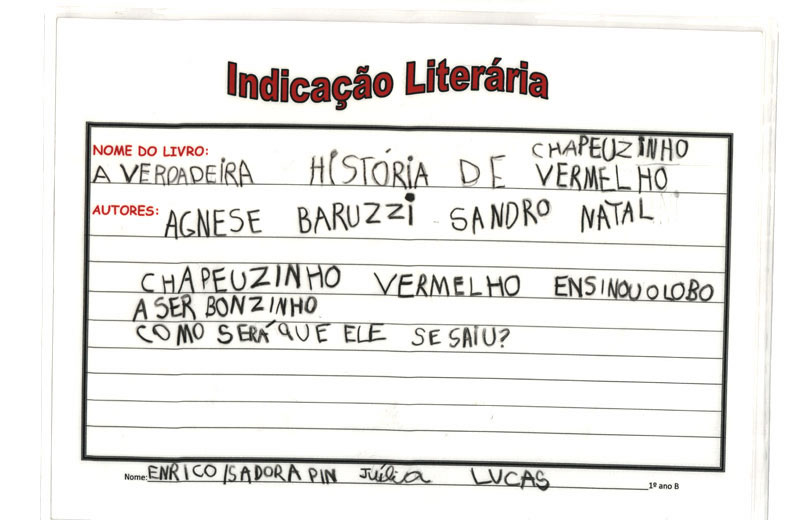 Indicação Literária
NOME DO LIVRO: CHAPEUZINHO
A VERDADEIRA HISTÓRIA DE VERMELHO
AUTORES: AGNESE BARUZZI SANDRO NATAL
CHAPEUZINHO VERMELHO ENSINOU O LOBO
A SER BONZINHO
COMO SERÁ QUE ELE SE SAIU?
Nome: ENRICO ISADORA PIN Júlia LUCAS 1º ano B